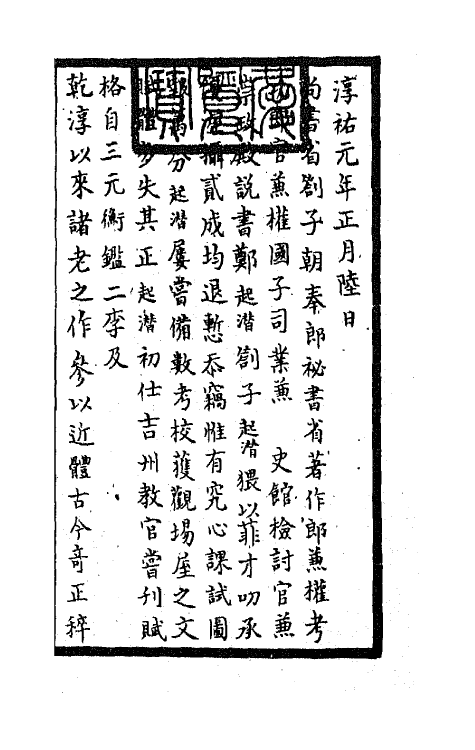 淳祐元年正月陸日
尚書省劄子朝奉郎秘書省著作郎兼權考
官兼權國子司業兼 史館檢討官兼
崇政殿說書鄭起潛劄子起潛猥以菲才叨承
攝貳成均退慙忝竊惟有究心課試圖
分起潛屢嘗備數考校獲觀場屋之文
賦體多失其正起潛初仕吉州教官嘗刊賦
格自三元衡鑑二李及
乾淳以來諸老之作參以近體古今奇正粹